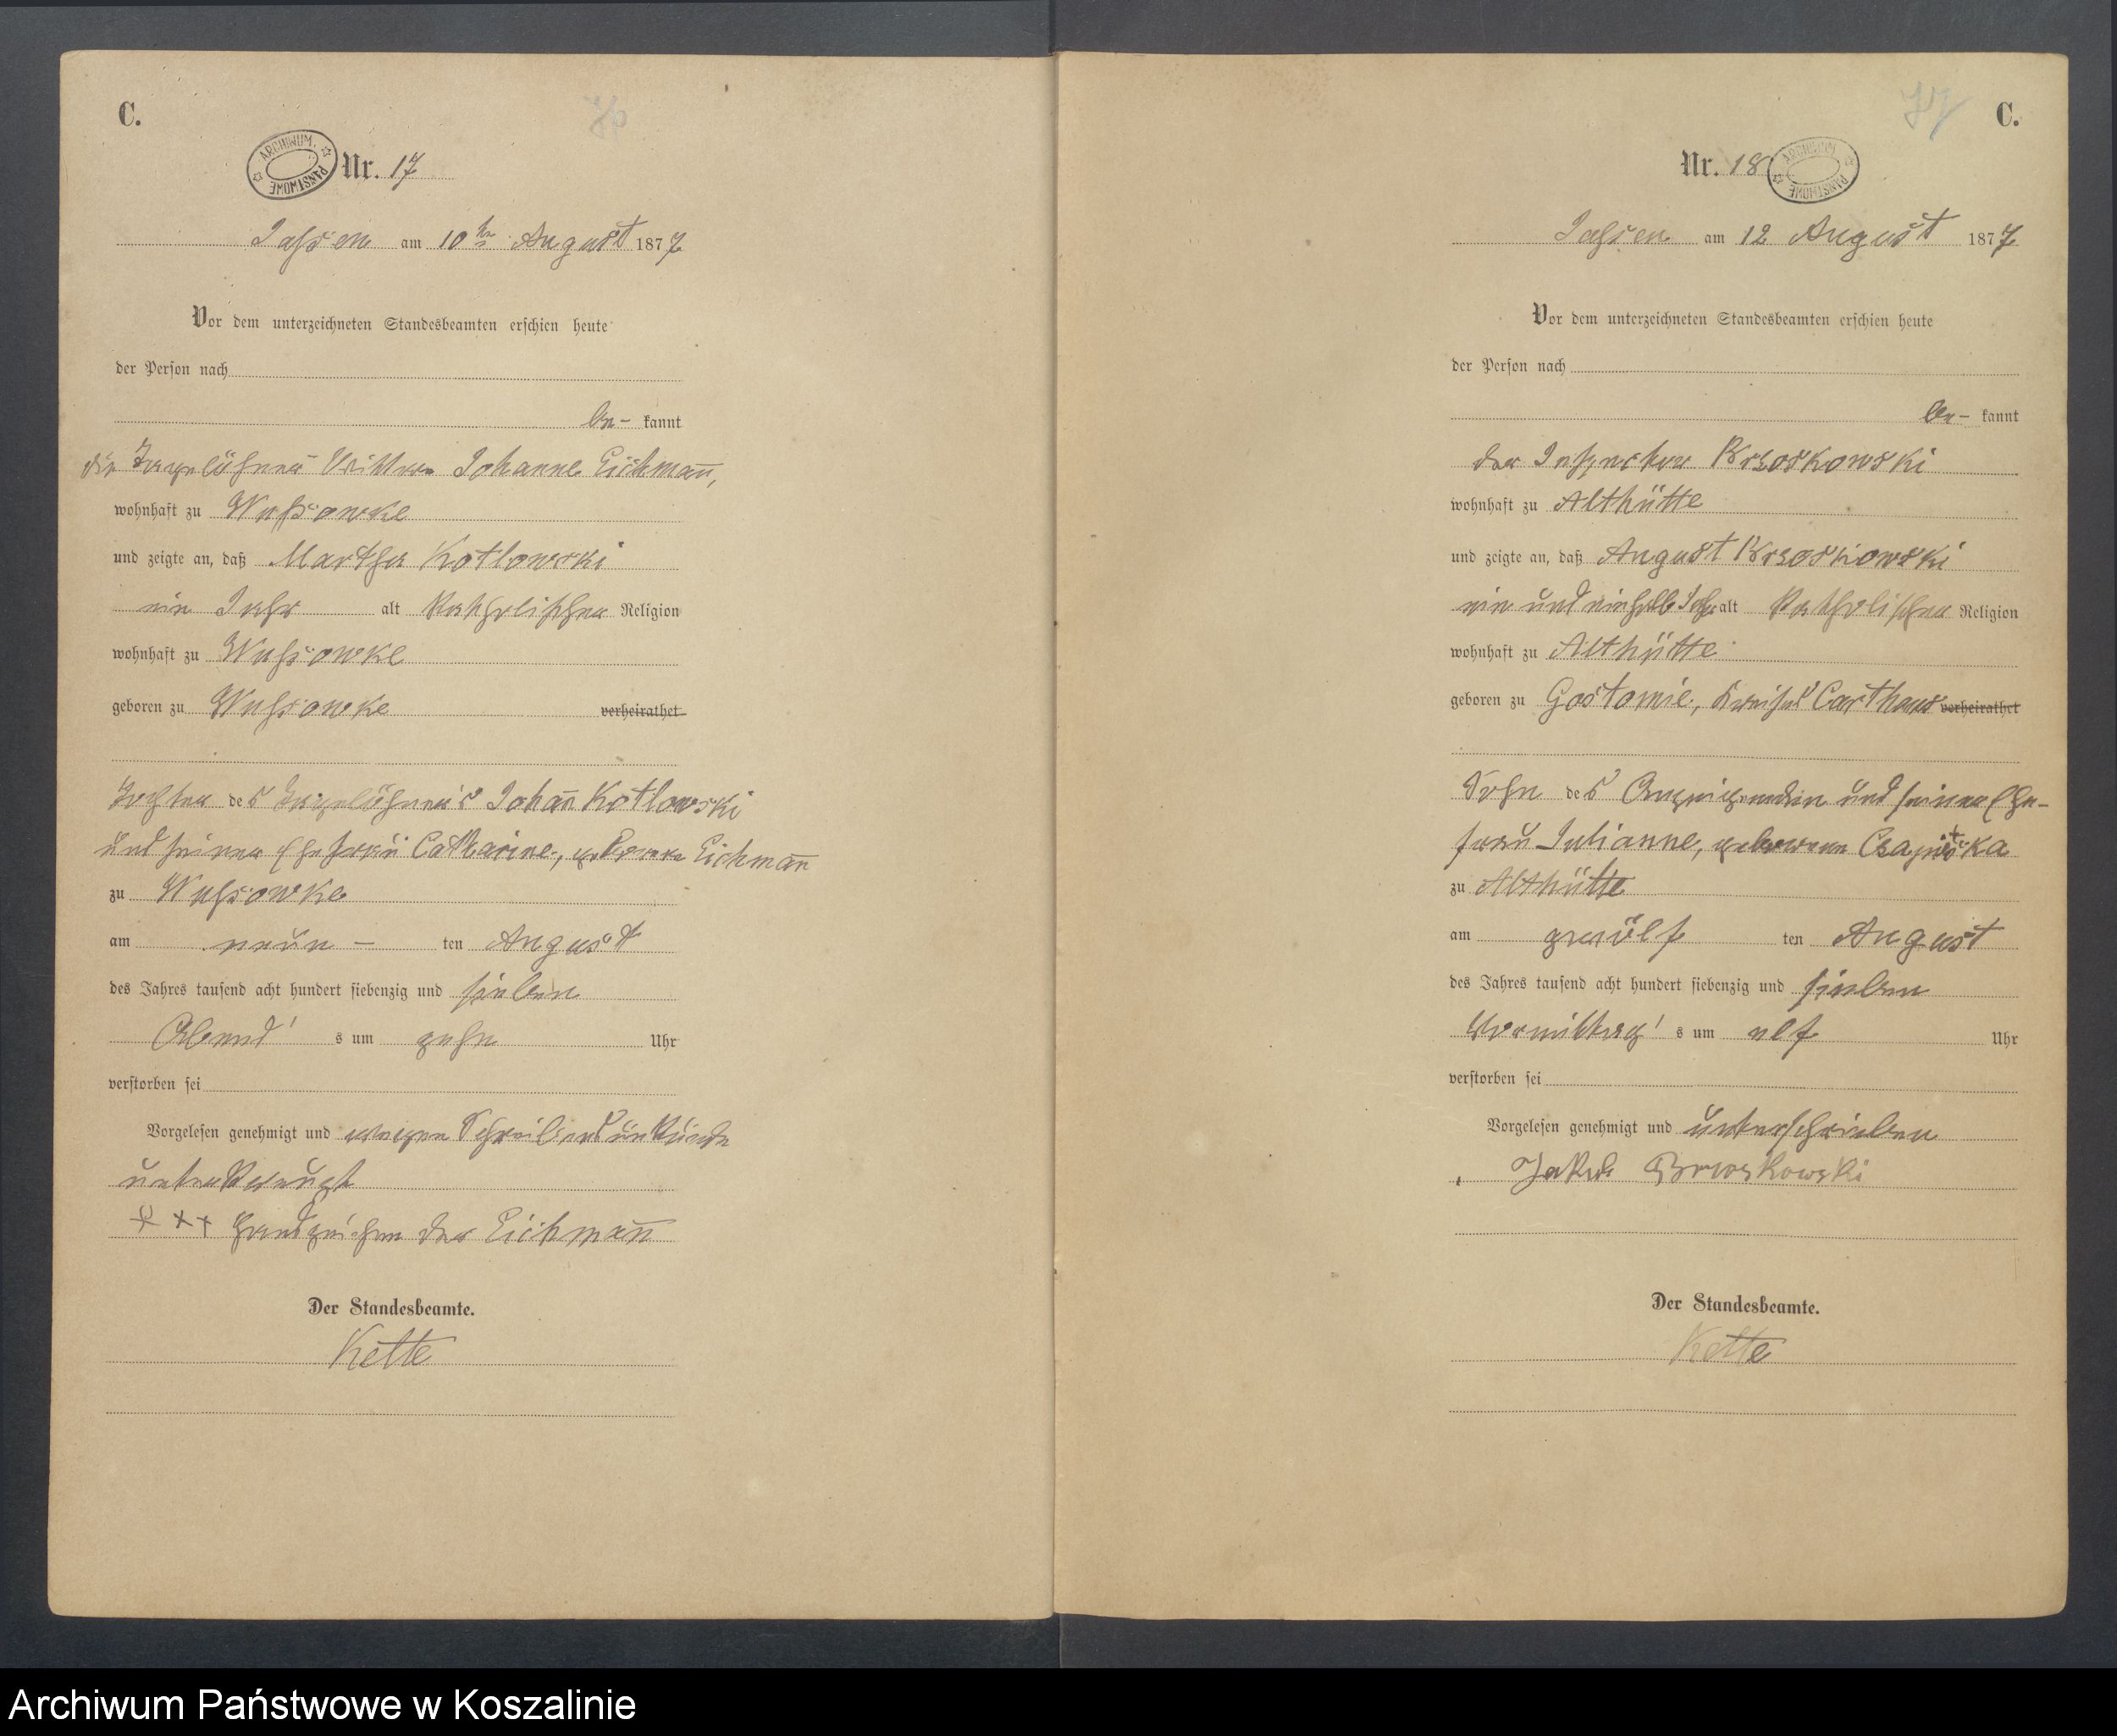 C.
76
ARCHIWUM PAŃSTWOWE
Nr. 17
Jassen am 10ten August 1877
Vor dem unterzeichneten Standesbeamten erschien heute
der Person nach
be- kannt
die Tagelöhner Wittwe Johanne Eichmann,
wohnhaft zu Wussowke
und zeigte an, daß Martha Kotlowski
ein Jahr alt katholischer Religion
wohnhaft zu Wussowke
geboren zu Wussowke verheirathet
Tochter des Tagelöhner's Johann Kotlowski
und seiner Ehefrau Catharine, geborene Eichmann
zu Wussowke
am neun - ten August
des Jahres tausend acht hundert siebenzig und sieben
Abend's um zehn Uhr
verstorben sei
Vorgelesen genehmigt und wegen Schreibensunkunde
unterkreuzt
+ + + Handzeichen der Eichmann
Der Standesbeamte.
Kette
77 C.
Nr. 18
ARCHIWUM PAŃSTWOWE
Jassen am 12 August 1877
Vor dem unterzeichneten Standesbeamten erschien heute
der Person nach
be- kannt
der Inspector Brzoskowski
wohnhaft zu Althütte
und zeigte an, daß August Brzoskowski
ein und einhalb Jahr alt katholischer Religion
wohnhaft zu Althütte
geboren zu Gostomie, Kreises Carthaus verheirathet
Sohn des Anzeigenden und seiner Ehe-
frau Julianne, geborenen
zu Althütte
am zwölf ten August
des Jahres tausend acht hundert siebenzig und sieben
Vormittag's um elf Uhr
verstorben sei
Vorgelesen genehmigt und unterschrieben
Jakub Brzoskowski
Der Standesbeamte.
Kette
Archiwum Państwowe w Koszalinie